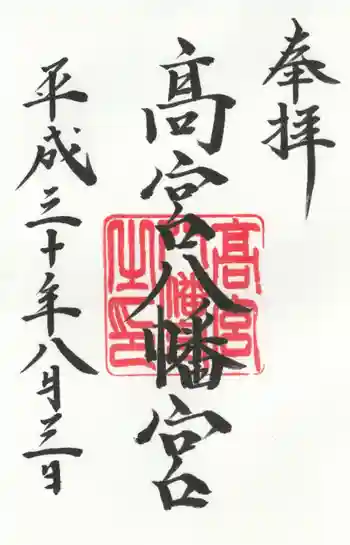 奉拝
高宮八幡宮
高宮八幡之印
平成三十年八月三日